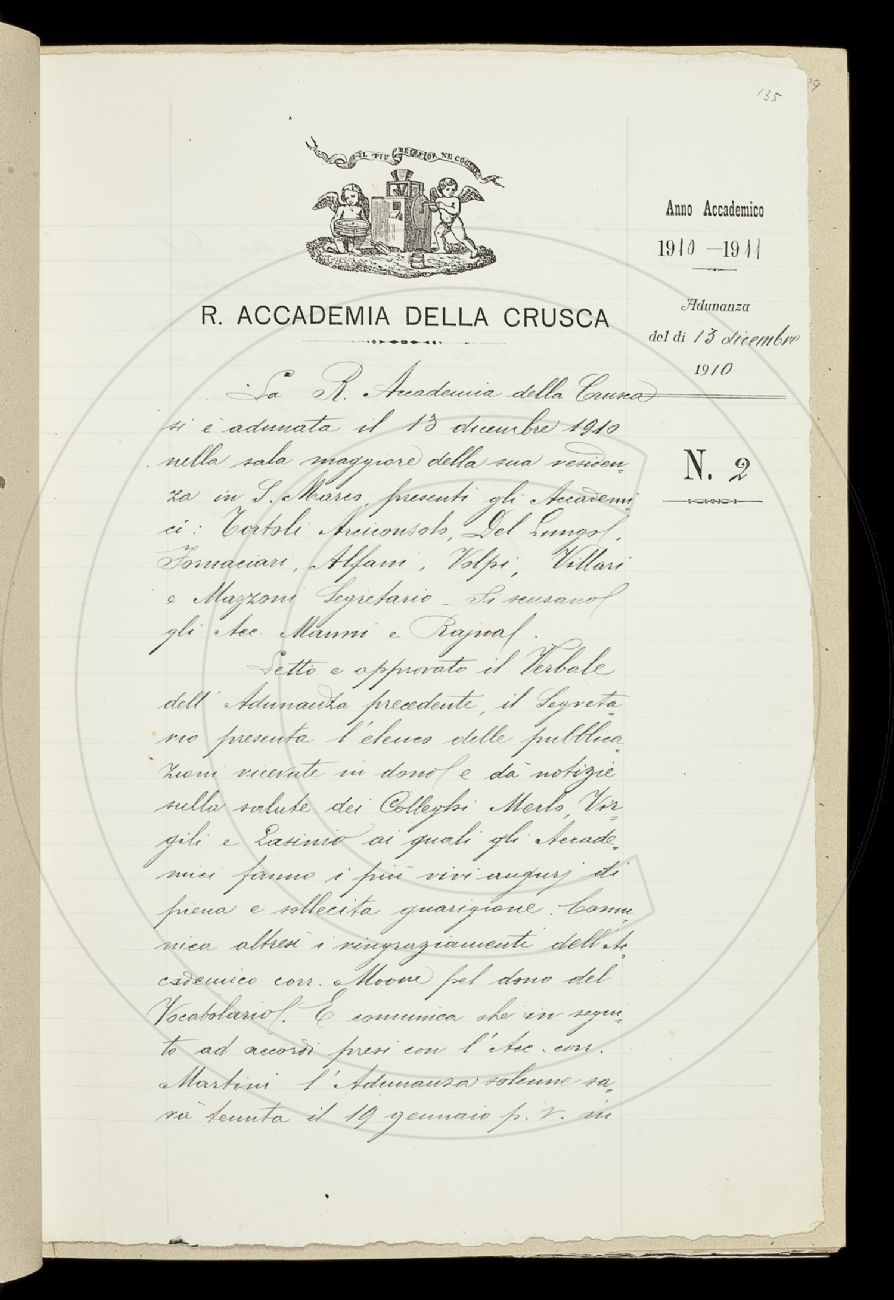 135
IL PIÙ BEL FIOR NE COGLIE
Anno Accademico
1910 - 1911
Adunanza
del dì 13 dicembre
1910
N. 2
R. ACCADEMIA DELLA CRUSCA
La R. Accademia della Crusca
si è adunata il 13 dicembre 1910
nella sala maggiore della sua residen-
za in S. Marco, presenti gli Accademi-
ci: Tortoli Arciconsolo, Del Lungo,
Fornaciari, Alfani, Volpi, Villari
e Mazzoni Segretario - Si scusano
gli Acc. Manni e Rajna.
Letto e approvato il Verbale
dell'Adunanza precedente, il Segreta-
rio presenta l'elenco delle pubblica-
zioni ricevute in dono e dà notizie
sulla salute dei Colleghi Merlo, Vir-
gili e Lasinio ai quali gli Accade-
mici fanno i più vivi augurj di
piena e sollecita guarigione. Comu-
nica altresì i ringraziamenti dell'Ac-
cademico corr. Moore pel dono del
Vocabolario. E comunica che in segui-
to ad accordi presi con l'Acc. corr.
Martini l'Adunanza solenne sa-
rà tenuta il 19 gennaio p. v. in